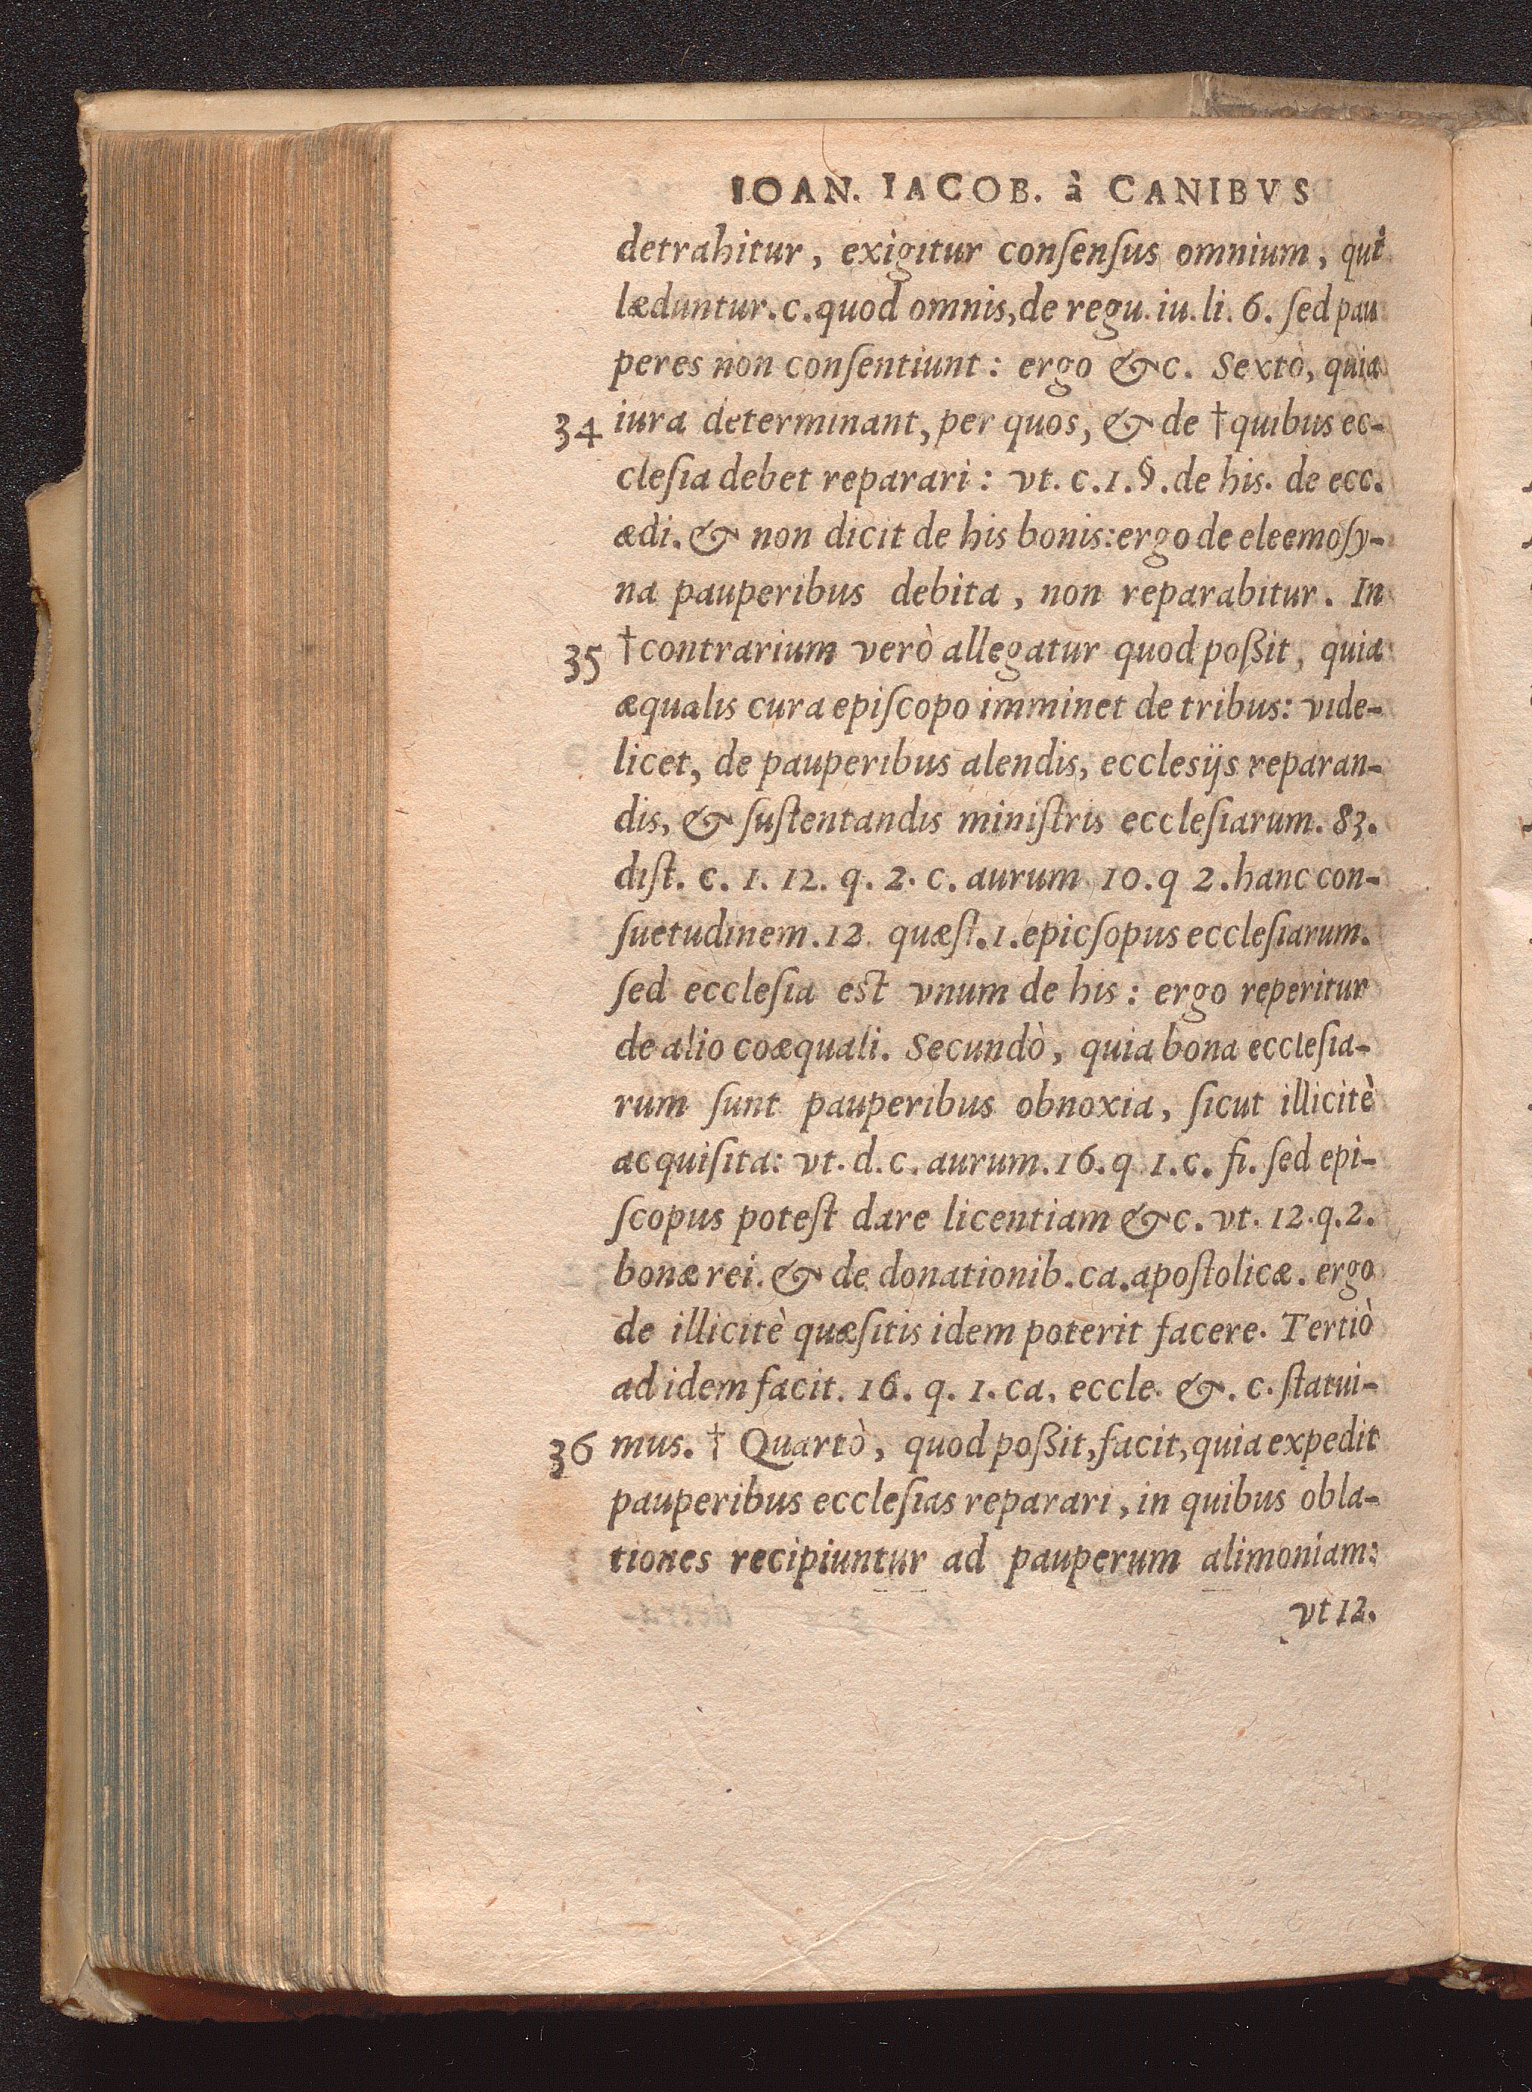 IOAN. IACOB. à CANIBVS
detrahitur, exigitur conſenſus omnium, qui
læduntur. c. quod omnis, de regu. iu. li. 6. ſed pau
peres non conſentiunt: ergo &c. Sextò, quia
34 iura determinant, per quos, & de †quibus ec-
cleſia debet reparari: vt. c. 1. §. de his. de ecc.
ædi. & non dicit de his bonis: ergo de eleemoſy-
na pauperibus debita, non reparabitur. In
35 †contrarium verò allegatur quod poßit, quia
æqualis cura epiſcopo imminet de tribus: vide-
licet, de pauperibus alendis, ecclesijs reparan-
dis, & ſuſtentandis miniſtris eccleſiarum. 83.
diſt. c. 1. 12. q. 2. c. aurum 10. q 2. hanc con-
ſuetudinem. 12. quæſt. 1. epicſopus eccleſiarum.
ſed eccleſia eſt vnum de his: ergo reperitur
de alio coæquali. Secundò, quia bona eccleſia-
rum ſunt pauperibus obnoxia, ſicut illicitè
acquiſita: vt. d. c. aurum. 16. q 1. c. fi. ſed epi-
ſcopus poteſt dare licentiam &c. vt. 12. q. 2.
bonæ rei. & de donationib. ca. apoſtolicæ. ergo
de illicitè quæſitis idem poterit facere. Tertiò
ad idem facit. 16. q. 1. ca. eccle. &. c. ſtatui-
36 mus. † Quartò, quod poßit, facit, quia expedit
pauperibus eccleſias reparari, in quibus obla-
tiones recipiuntur ad pauperum alimoniam:
vt 12.